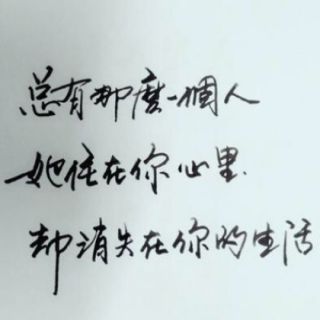 总有那麽一個人
她住在你心里
却消失在你的生活